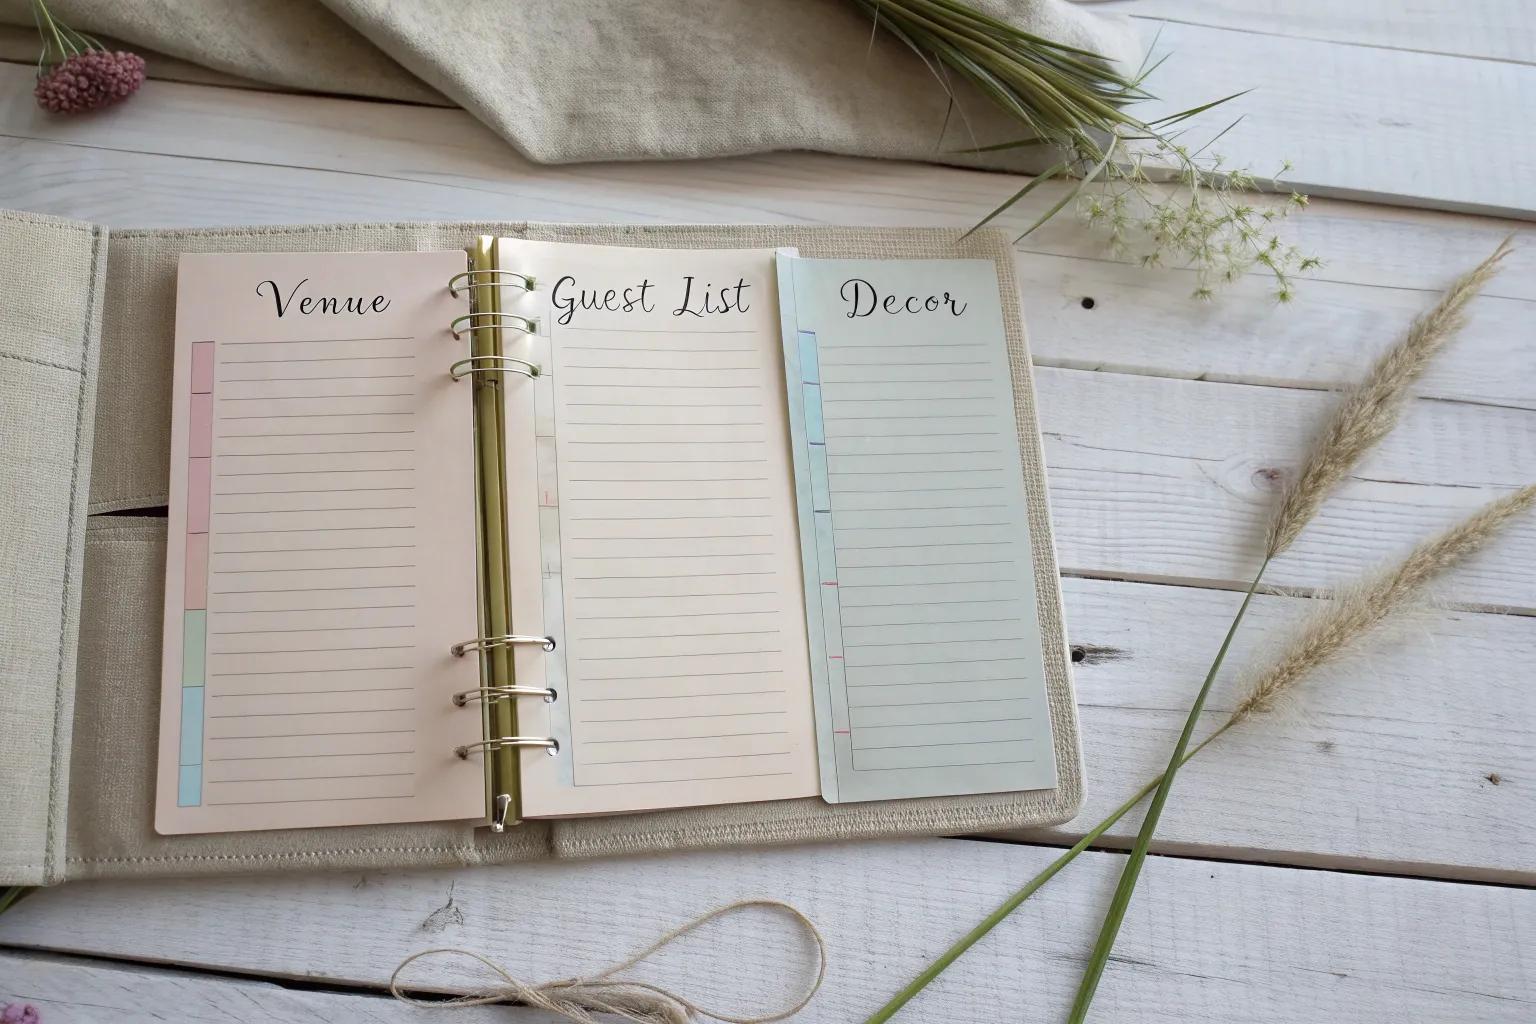 Venue
Guest List
Decor